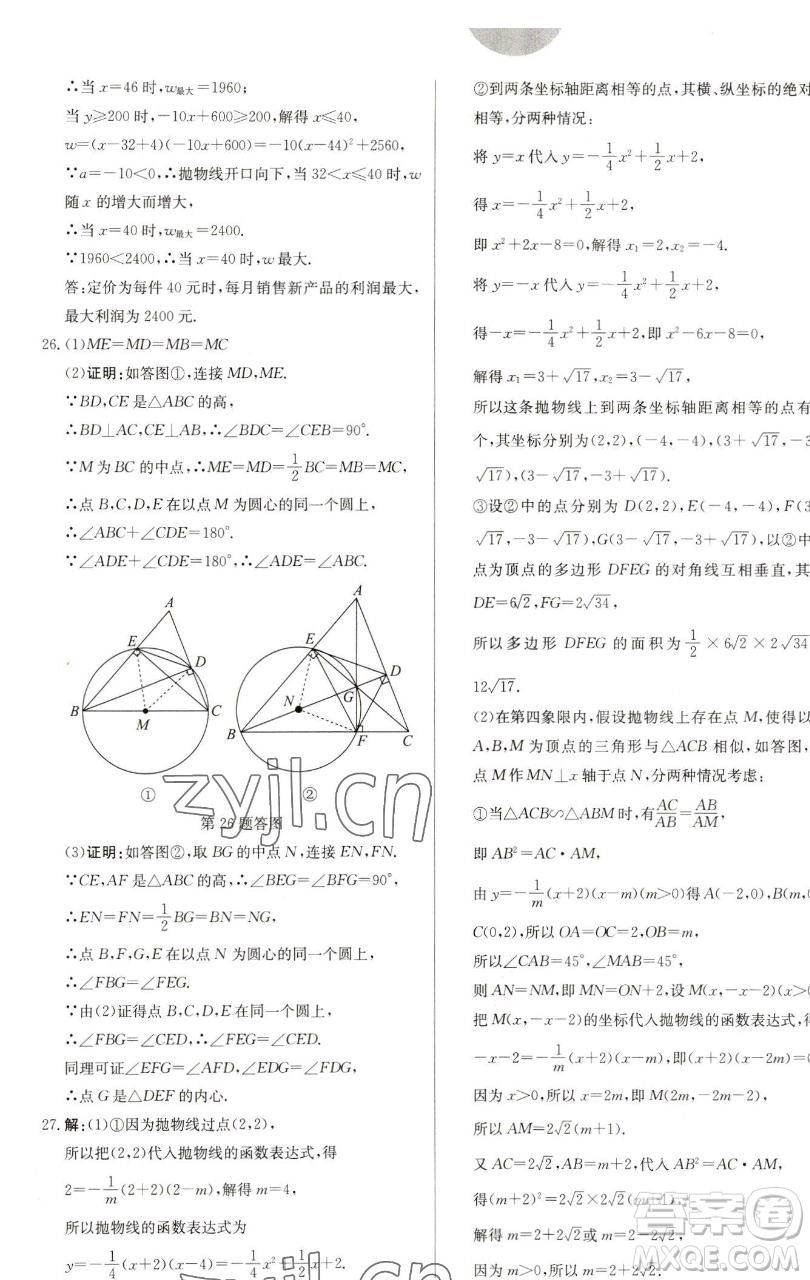 ∴当 x=46 时,w最大=1960;
当 y≥200 时,-10x+600≥200,解得 x≤40,
w=(x-32+4)(-10x+600)=-10(x-44)²+2560,
∵a=-10<0,∴抛物线开口向下,当 32<x≤40 时,w
随 x 的增大而增大,
∴当 x=40 时,w最大=2400.
∵1960<2400,∴当 x=40 时,w 最大.
答:定价为每件 40 元时,每月销售新产品的利润最大,
最大利润为 2400 元.
26. (1)ME=MD=MB=MC
(2)证明:如答图①,连接 MD,ME.
∵BD,CE 是△ABC 的高,
∴BD⊥AC,CE⊥AB,∴∠BDC=∠CEB=90°.
∵M 为 BC 的中点,∴ME=MD=1/2BC=MB=MC,
∴点 B,C,D,E 在以点 M 为圆心的同一个圆上,
∴∠ABC+∠CDE=180°.
∵∠ADE+∠CDE=180°,∴∠ADE=∠ABC.
A
E
D
B
M
C
①
A
E
D
N
G
B
F
C
②
第 26 题答图
(3)证明:如答图②,取 BG 的中点 N,连接 EN,FN.
∵CE,AF 是△ABC 的高,∴∠BEG=∠BFG=90°,
∴EN=FN=1/2BG=BN=NG,
∴点 B,F,G,E 在以点 N 为圆心的同一个圆上,
∴∠FBG=∠FEG.
∵由(2)证得点 B,C,D,E 在同一个圆上,
∴∠FBG=∠CED,∴∠FEG=∠CED.
同理可证∠EFG=∠AFD,∠EDG=∠FDG,
∴点 G 是△DEF 的内心.
27. 解:(1)①因为抛物线过点(2,2),
所以把(2,2)代入抛物线的函数表达式,得
2=-1/m(2+2)(2-m),解得 m=4,
所以抛物线的函数表达式为
y=-1/4(x+2)(x-4)=-1/4x²+1/2x+2.
②到两条坐标轴距离相等的点,其横、纵坐标的绝对
相等,分两种情况:
将 y=x 代入 y=-1/4x²+1/2x+2,
得 x=-1/4x²+1/2x+2,
即 x²+2x-8=0,解得 x₁=2,x₂=-4.
将 y=-x 代入 y=-1/4x²+1/2x+2,
得-x=-1/4x²+1/2x+2,即 x²-6x-8=0,
解得 x₁=3+√17,x₂=3-√17,
所以这条抛物线上到两条坐标轴距离相等的点有
个,其坐标分别为(2,2),(-4,-4),(3+√17,-3-
√17),(3-√17,-3+√17).
③设②中的点分别为 D(2,2),E(-4,-4),F(3
√17,-3-√17),G(3-√17,-3+√17),以②中
点为顶点的多边形 DFEG 的对角线互相垂直,其
DE=6√2,FG=2√34,
所以多边形 DFEG 的面积为 1/2×6√2×2√34
12√17.
(2)在第四象限内,假设抛物线上存在点 M,使得以
A,B,M 为顶点的三角形与△ACB 相似,如答图,
点 M 作 MN⊥x 轴于点 N,分两种情况考虑:
①当△ACB∽△ABM 时,有AC/AB=AB/AM,
即 AB²=AC·AM,
由 y=-1/m(x+2)(x-m)(m>0)得 A(-2,0),B(m,
C(0,2),所以 OA=OC=2,OB=m,
所以∠CAB=45°,∠MAB=45°,
则 AN=NM,即 MN=ON+2,设 M(x,-x-2)(x>0
把 M(x,-x-2)的坐标代入抛物线的函数表达式,得
-x-2=-1/m(x+2)(x-m),即(x+2)(x-2m)=0
因为 x>0,所以 x=2m,即 M(2m,-2m-2),
所以 AM=2√2(m+1).
又 AC=2√2,AB=m+2,代入 AB²=AC·AM,
得(m+2)²=2√2×2√2(m+1),
解得 m=2+2√2或 m=2-2√2.
因为 m>0,所以 m=2+2√2.
zyjl.cn
答案卷
MXQE